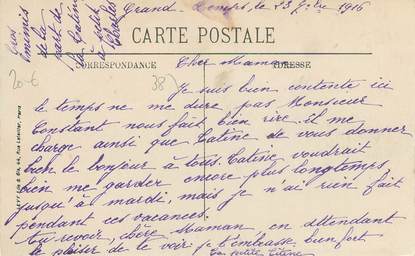 Grand-Lemps, le 23 7bre 1916
CARTE POSTALE
CORRESPONDANCE
ADRESSE
Chère Maman
Je suis bien contente ici
le temps ne me dure pas Monsieur
Constant nous fait bien rire. Il me
charge ainsi que Catine de vous donner
bien le bonjour à tous. Catine voudrait
bien me garder encore plus longtemps
jusqu'à mardi, mais je n'ai rien fait
pendant ces vacances.
Au revoir, chère Maman, en attendant
le plaisir de te voir je t'embrasse bien fort
Ta petite Titine
Gros
mimis
de la
part de
la Catine
à petit
20 €
38
LEVY Fils & Cie, 44, Rue Letellier, Paris